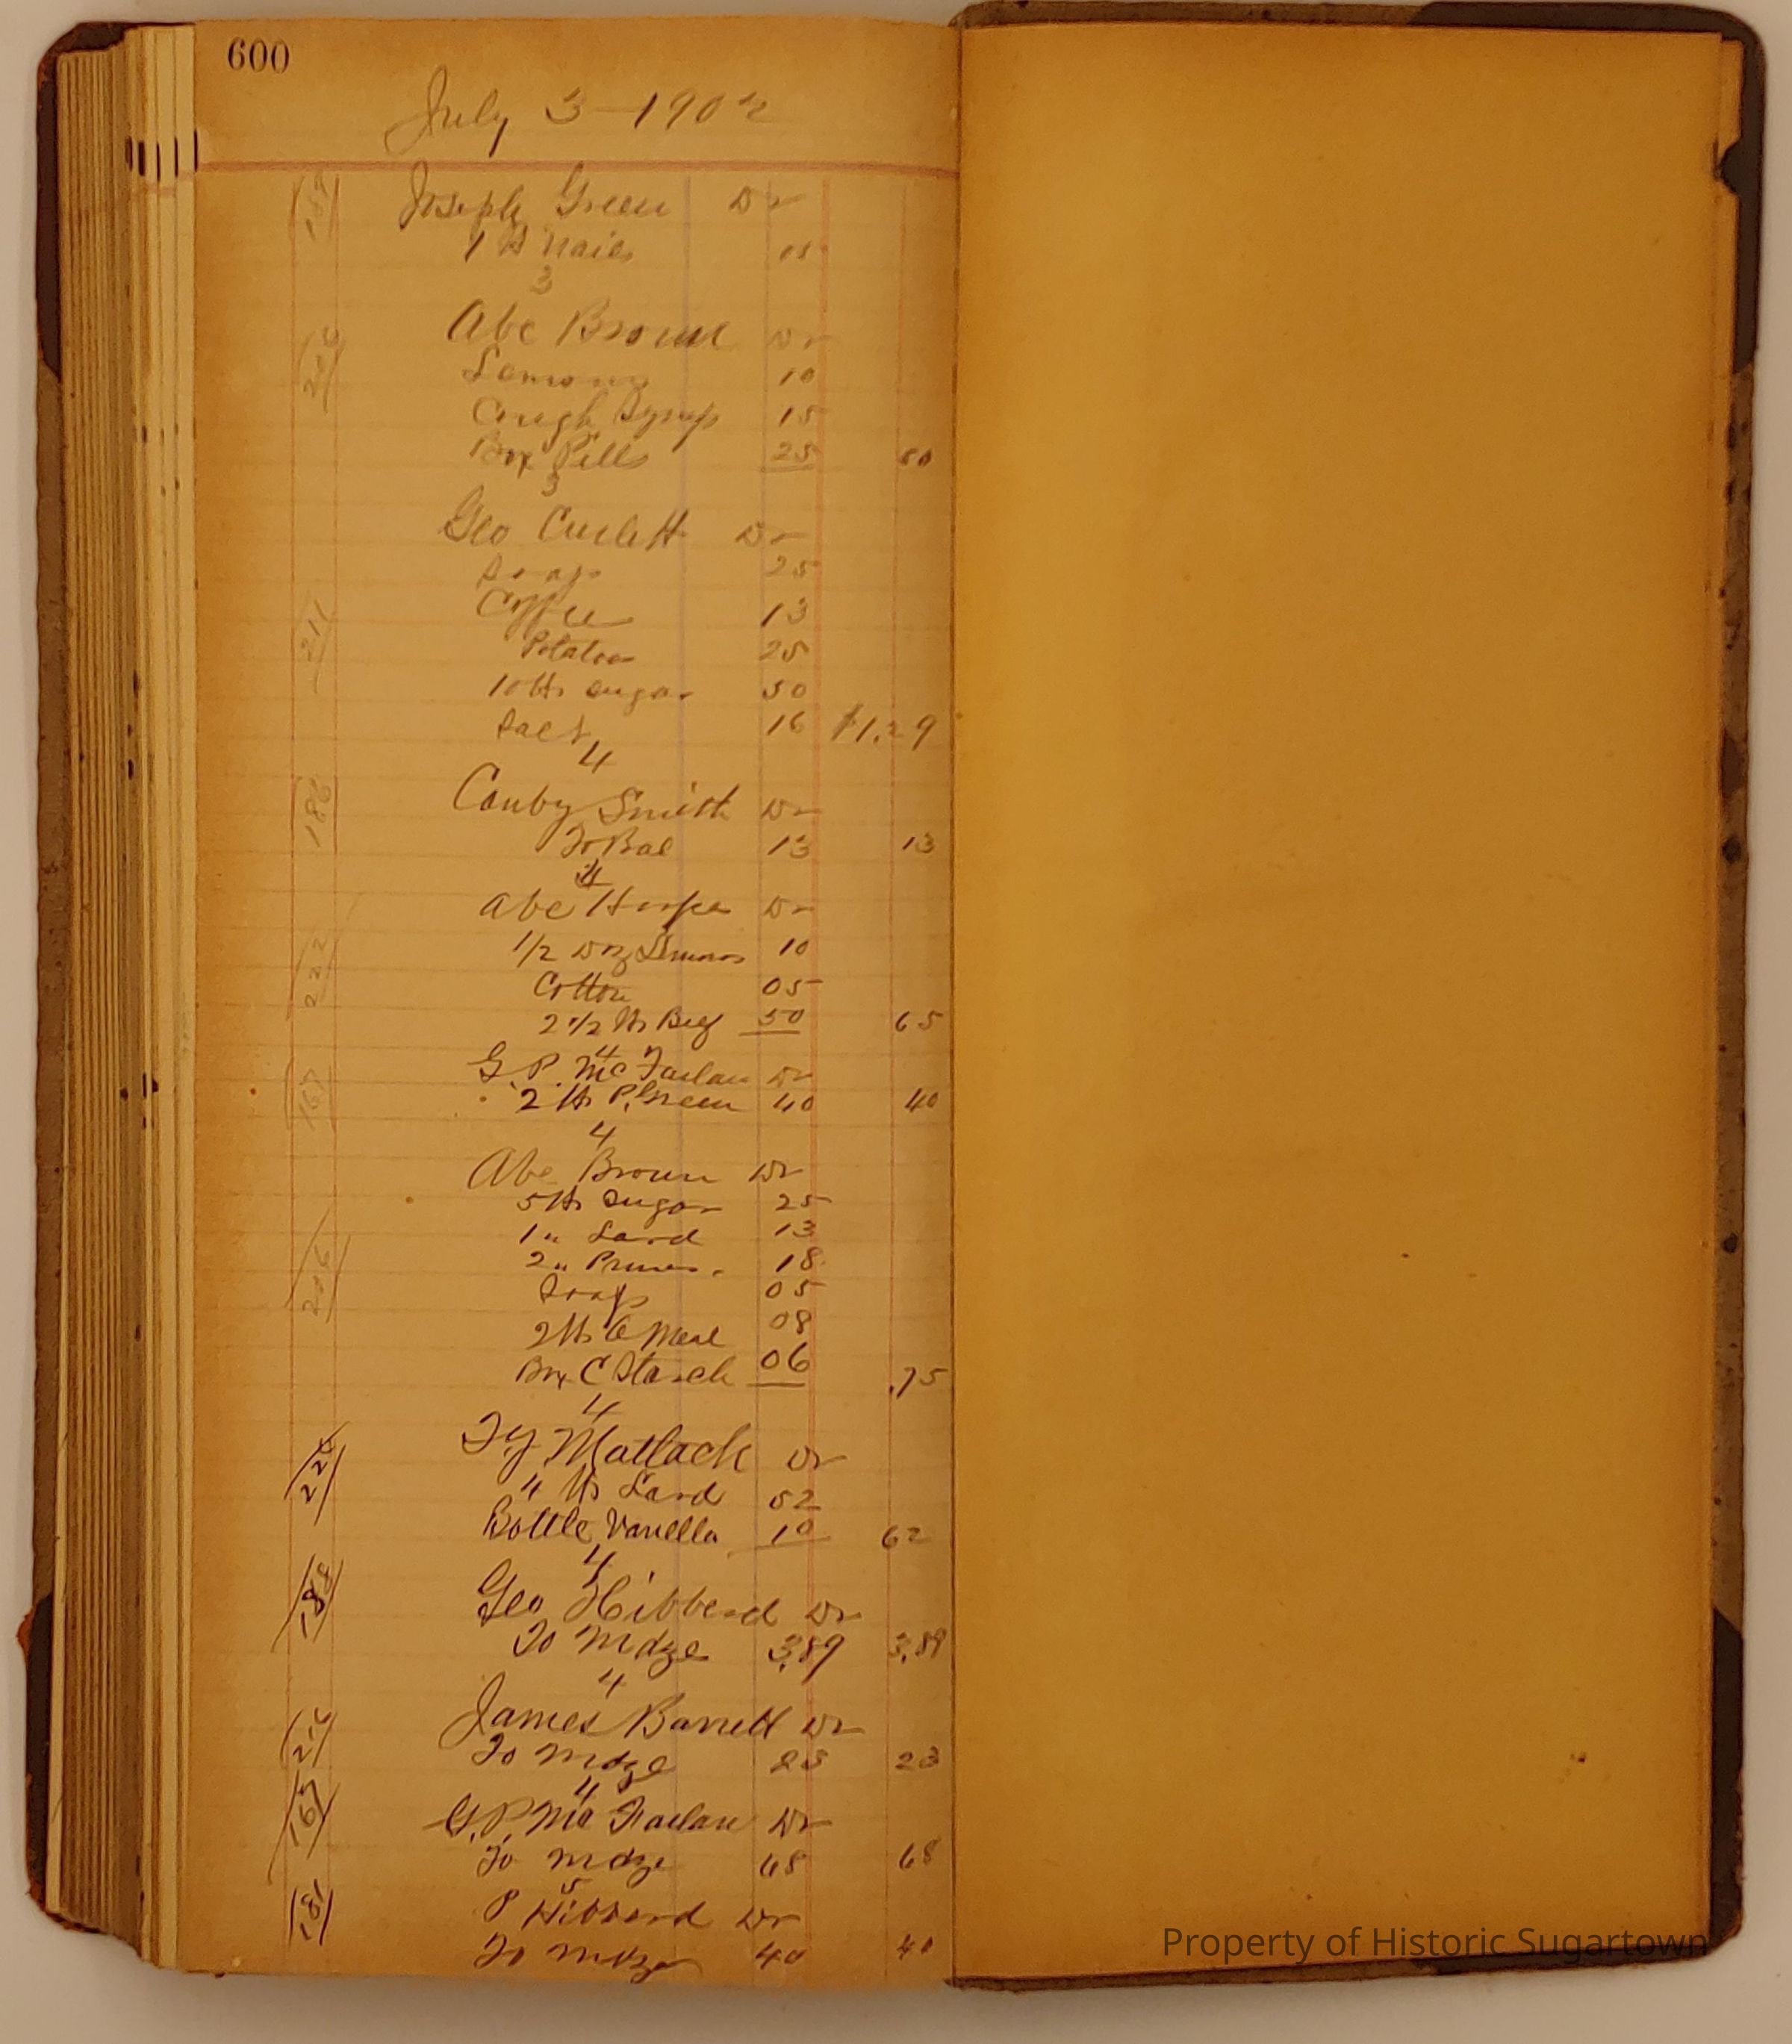 600
July 3 - 1902
Joseph Green Dr
1 lb Nails 05
3
206 Abe Brown Dr
Lemons 10
Cough Syrup 15
Box Pills 25 50
3
Geo Curlett Dr
Soap 25
Coffee 13
211 Potatoes 25
10 lbs Sugar 50
Salt 16 $1.29
4
186 Canby Smith Dr
To Bal 13 13
4
Abe Hoopes Dr
1/2 Doz Lemons 10
222 Cotton 05
2 1/2 lbs Beef 50 65
4
167 G. P. McFarlan Dr
2 lbs P. Green 40 40
4
Abe Brown Dr
5 lbs Sugar 25
1 " Lard 13
2 " Prunes 18
206 Soap 05
2 lbs O Meal 08
Box C Starch 06 .75
4
Ty Matlack Dr
4 lbs Lard 52
Bottle Vanilla 10 62
4
188 Geo Hibberd Dr
To Mdze 3,89 3,89
4
James Barrett Dr
To Mdze 23 23
4
167 G. P. McFarlan Dr
To Mdze 68 68
5
181 P Hibberd Dr
To Mdze 40 40
Property of Historic Sugartown